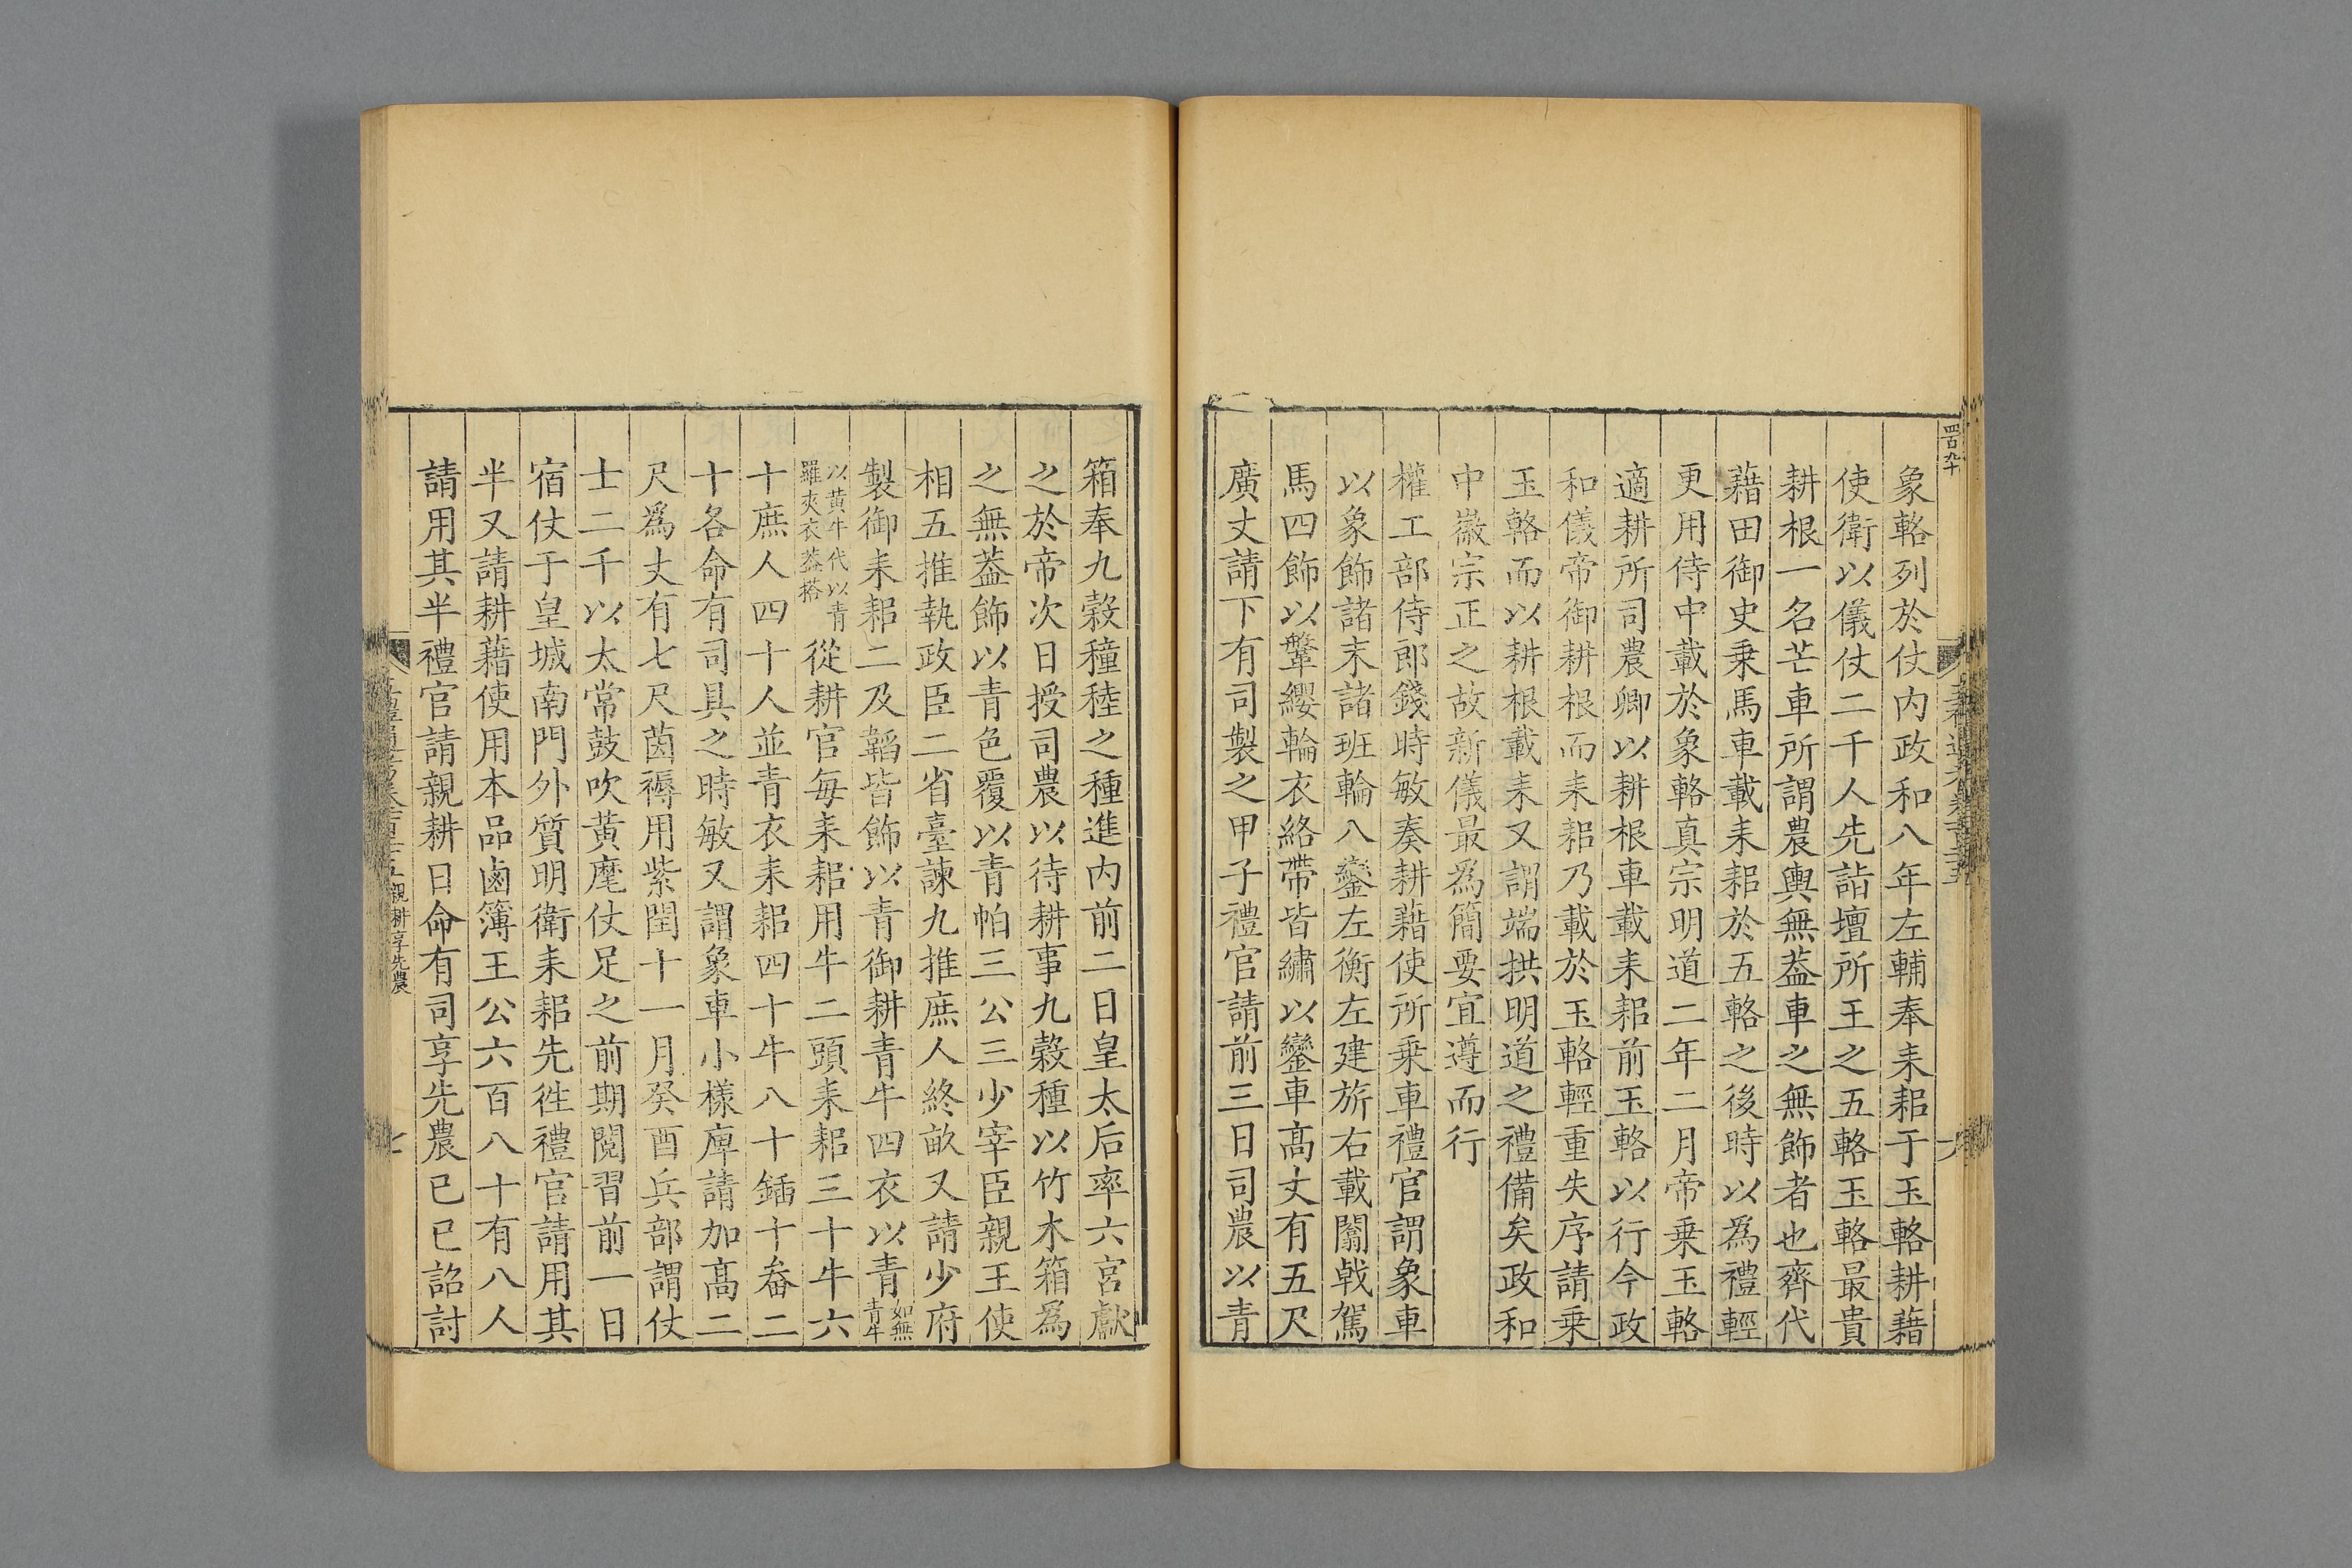 四百九十
象輅列於仗内政和八年左輔奉耒耜于玉輅耕藉
使衛以儀仗二千人先詣壇所王之五輅玉輅最貴
耕根一名芒車所謂農輿無葢車之無飾者也齊代
藉田御史乗馬車載耒耜於五輅之後時以爲禮輕
更用侍中載於象輅真宗明道二年二月帝乗玉輅
適耕所司農卿以耕根車載耒耜前玉輅以行今政
和儀帝御耕根而耒耜乃載於玉輅輕重失序請乗
玉輅而以耕根載耒又謂端拱明道之禮備矣政和
中徽宗正之故新儀最爲簡要宜遵而行
權工部侍郎錢時敏奏耕藉使所乗車禮官謂象車
以象飾諸末諸班輪八鑾左衡左建旂右載闟戟駕
馬四飾以鞶纓輪衣絡帶皆繡以鑾車髙丈有五尺
廣丈請下有司製之甲子禮官請前三日司農以青
箱奉九榖穜稑之種進内前二日皇太后率六宮獻
之於帝次日授司農以待耕事九榖種以竹木箱爲
之無葢飾以青色覆以青帕三公三少宰臣親王使
相五推執政臣二省臺諫九推庶人終畝又請少府
製御耒耜二及韜皆飾以青御耕青牛四衣以青如無青牛
以黄牛代以青羅夾衣葢搭從耕官每耒耜用牛二頭耒耜三十牛六
十庶人四十人並青衣耒耜四十牛八十鍤十畚二
十各命有司具之時敏又謂象車小樣庳請加髙二
尺爲丈有七尺茵褥用紫閏十一月癸酉兵部謂仗
士二千以太常鼓吹黄麾仗足之前期閲習前一日
宿仗于皇城南門外質明衛耒耜先徃禮官請用其
半又請耕藉使用本品鹵簿王公六百八十有八人
請用其半禮官請親耕日命有司享先農已巳詔討
親耕享先農
七